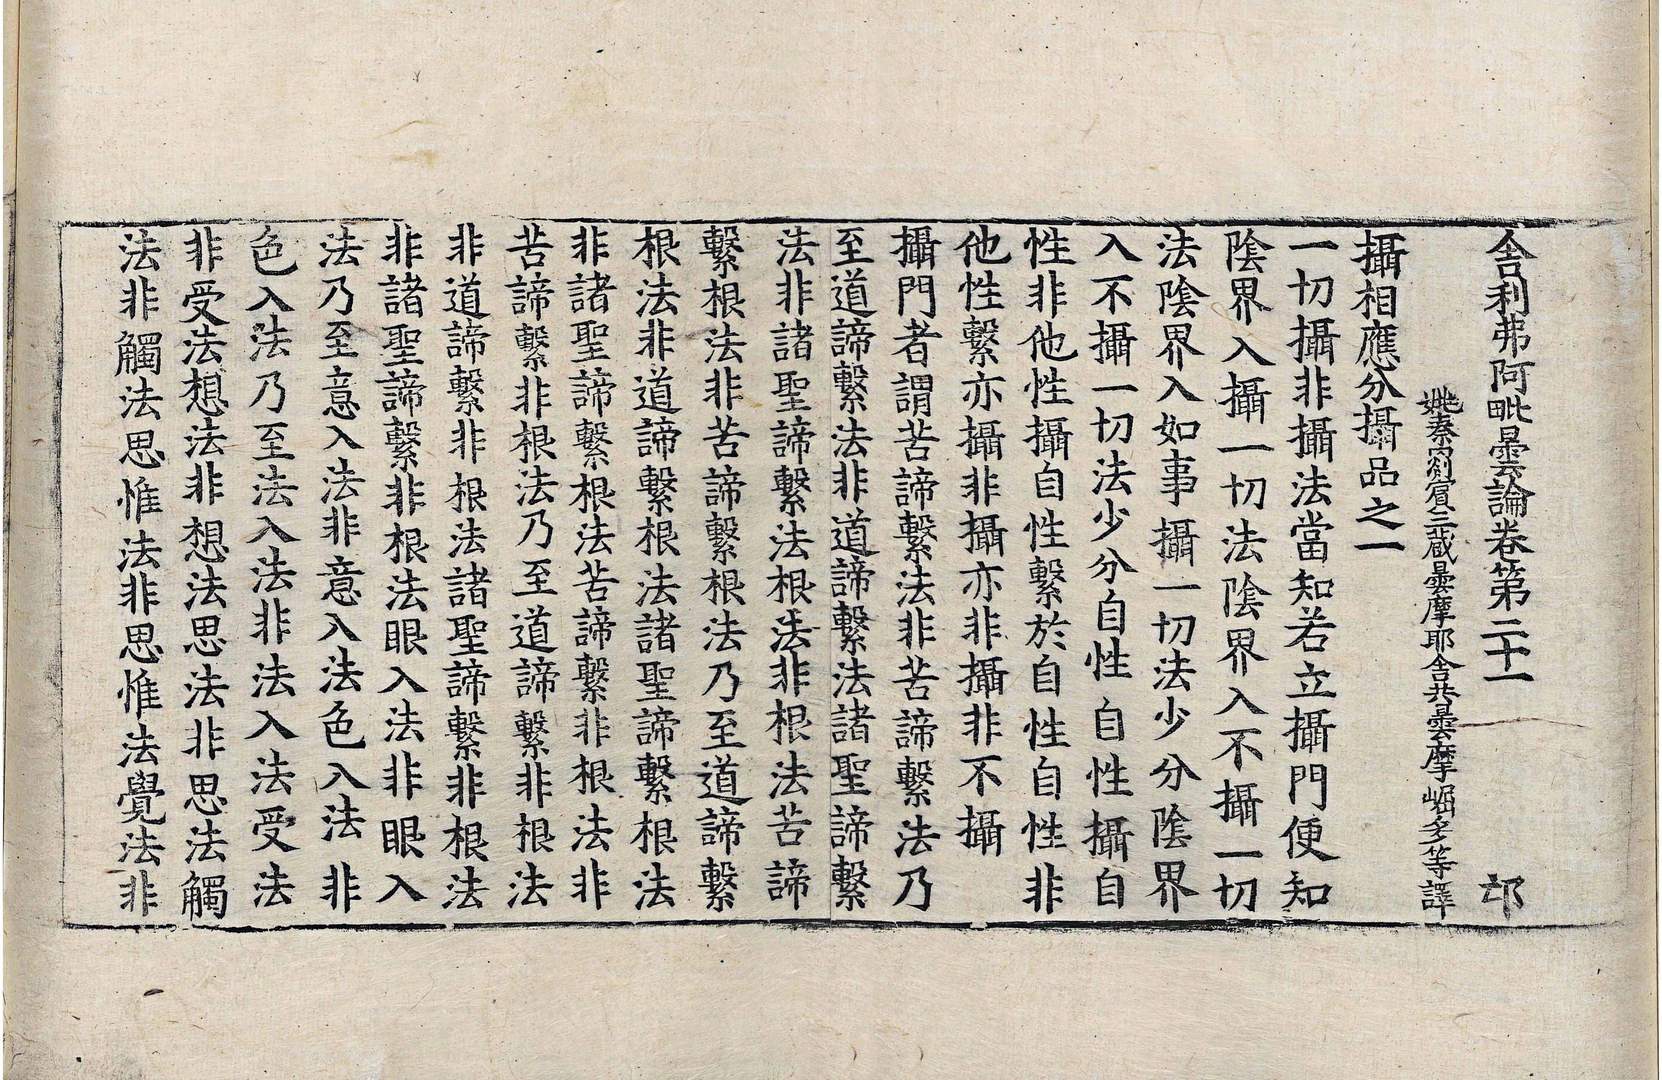 舍利弗阿毗曇論卷第二十一　卭
姚秦罽賓三藏曇摩耶舍共曇摩崛多等譯
攝相應分攝品之一
一切攝非攝法當知若立攝門便知
陰界入攝一切法陰界入不攝一切
法陰界入如事攝一切法少分陰界
入不攝一切法少分自性自性攝自
性非他性攝自性繫於自性自性非
他性繫亦攝非攝亦非攝非不攝
攝門者謂苦諦繫法非苦諦繫法乃
至道諦繫法非道諦繫法諸聖諦繫
法非諸聖諦繫法根法非根法苦諦
繫根法非苦諦繫根法乃至道諦繫
根法非道諦繫根法諸聖諦繫根法
非諸聖諦繫根法苦諦繫非根法非
苦諦繫非根法乃至道諦繫非根法
非道諦繫非根法諸聖諦繫非根法
非諸聖諦繫非根法眼入法非眼入
法乃至意入法非意入法色入法非
色入法乃至法入法非法入法受法
非受法想法非想法思法非思法觸
法非觸法思惟法非思惟法覺法非